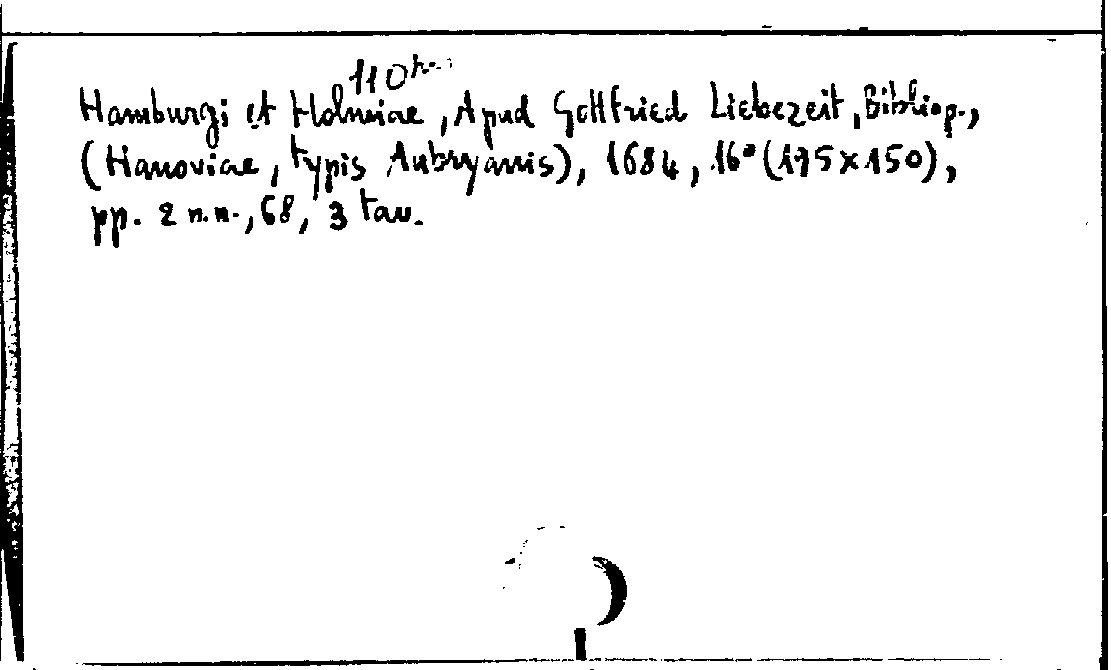 110
Hamburgi et Holmiae, Apud Gottfried Liebezeit, Bibliop.,
(Hanoviae, typis Aubryanis), 1684, 16° (195x150),
pp. 2 n.n., 68, 3 tav.